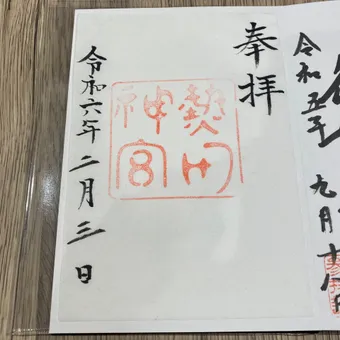 奉拝
熱田
神宮
令和六年二月三日
令和五年
九月十八日